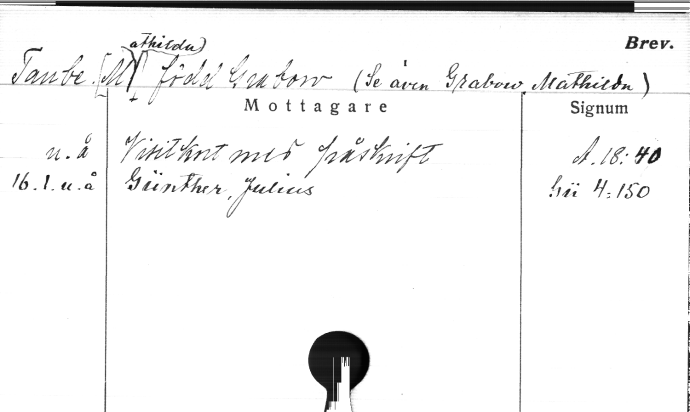 Brev.
Taube [M(athilda)] född Grabow (Se även Grabow, Mathilda)
Mottagare Signum
u.å Visitkort med påskrift A. 18:40
16.1.u.å Günther, Julius Gü 4:150